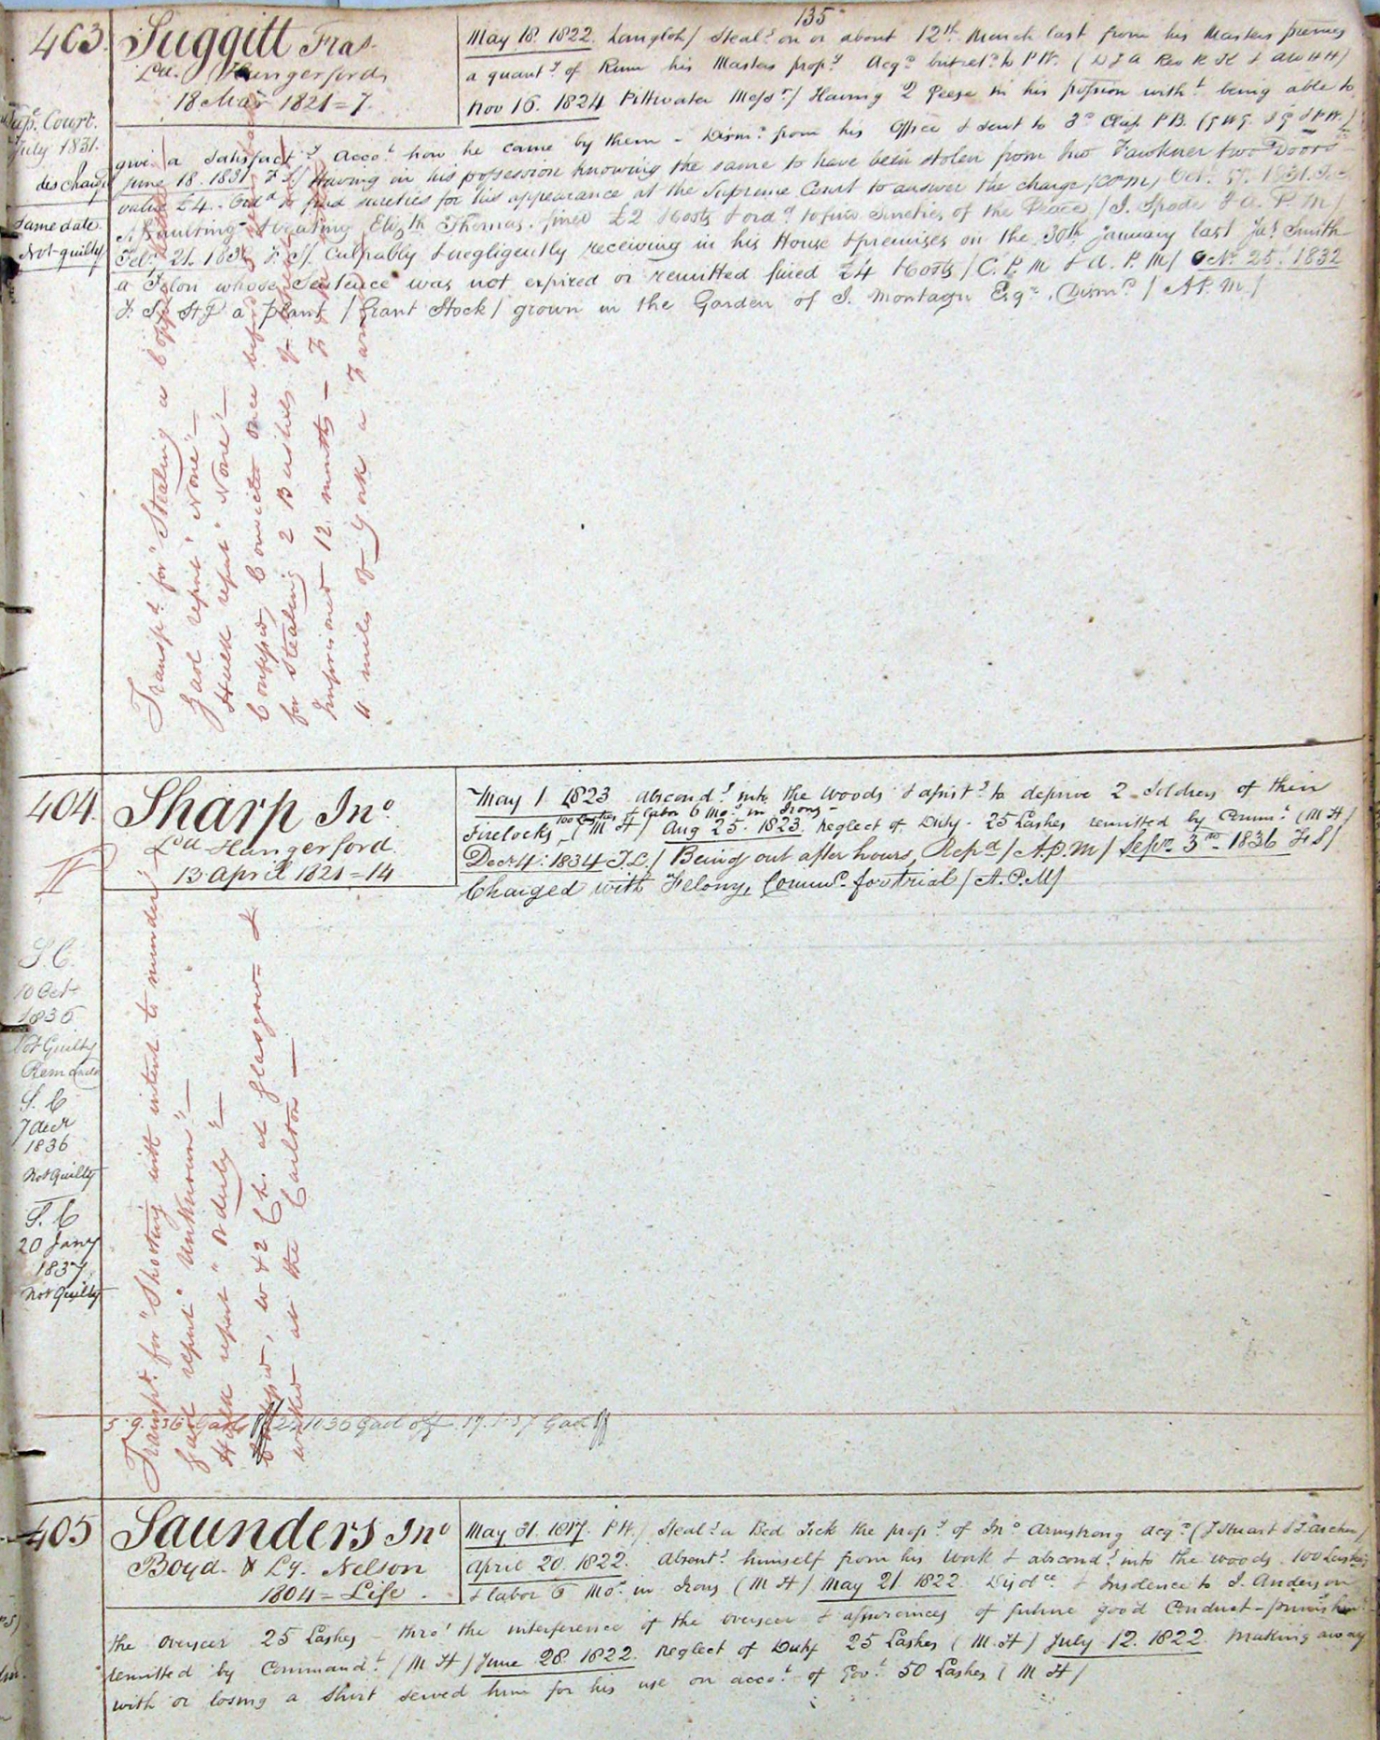 135
403
Suggitt Fras.
Ld. Hungerford
18 Mar 1821 = 7.
May 18. 1822. Langloh / Stealg on or about 12th March last from his Masters premes
a quanty of Rum his Masters propy Acqd but retd to P.W. (D J A Rev R K & AWHH)
Nov 16. 1824 Pittwater Messr / Having 2 Geese in his possion witht being able to
give a satisfacty Accot how he came by them - Dismd from his Office & sent to 3d Class P.B.
Sups Court.
July 1831.
discharged
June 18. 1831 F.S / Having in his possession knowing the same to have been stolen from Jno Fawkner two Doors
value £4. Ordd to find sureties for his appearance at the Supreme Court to answer the charge / P.M / Oct. 1831 F.S
Assaulting & beating Elizth Thomas. fined £2 & Costs & ordd to find Sureties of the Peace / J. Spode & A. P. M /
same date
Not guilty
Feby 21. 1832 F.S / Culpably & negligently receiving in his House & premises on the 30th January last Jas Smith
a Felon whose Sentence was not expired or remitted fined £4 & Costs / C. P. M & A. P. M / Oct 25. 1832
F. S / Stg a plant / Grant Stock / grown in the Garden of J. Montagu Esqre. Dismd / A.P.M /
Transpd for "Stealing a Copper
Gaol report "None" —
Hulk report "None" —
Confessed, Convicted once before
for stealing 2 Bushels of
Imprisoned 12 months —
4 miles of York a Farm
404
Sharp Jno
Ld Hungerford.
13 April 1821 = 14
May 1 1823 Abscondg into the woods & assistg to deprive 2 Soldiers of their
100 Lashes & labor 6 Mos in Irons -
Firelocks (M H) Aug 25. 1823. Neglect of Duty - 25 Lashes remitted by Commt (M H)
Decr 4: 1834 T.L. / Being out after hours, Repd / A.P.M / Sepr 3rd 1836 F S /
Charged with Felony, Commd for trial / A.P.M /
S.C.
10 Oct
1836
Not Guilty
Remanded
S. C
7 decr
1836
Not Guilty
S. C
20 Jany
1837
Not Guilty
Transpd for "Shooting with intent to murder"
Gaol report "Unknown" —
Hulk report "Orderly" —
Confessed, W & 2 Ch. at Glasgow &
worked at the Carlton —
5. 9. 36 Gaol 22.10.36 Gaol off. 19.1.37 Gaol
405
Saunders Jno
Boyd. & Ly. Nelson
1804 = Life.
May 31. 1817. P.W. / Stealg a Bed Tick the propy of Jno Armstrong Acqd
April 20. 1822. Absentg himself from his Work & abscondg into the woods 100 Lashes
& labor 6 Mos in Irons (M H) May 21 1822. Disobce & Insolence to J. Anderson
the overseer 25 Lashes - thro' the interference of the overseer & assurances of future good Conduct - punisht
remitted by Commandt (M H) June 28. 1822. Neglect of Duty 25 Lashes (M. H) July 12. 1822. Making away
with or losing a Shirt served him for his use on accot of Govt 50 Lashes (M H)